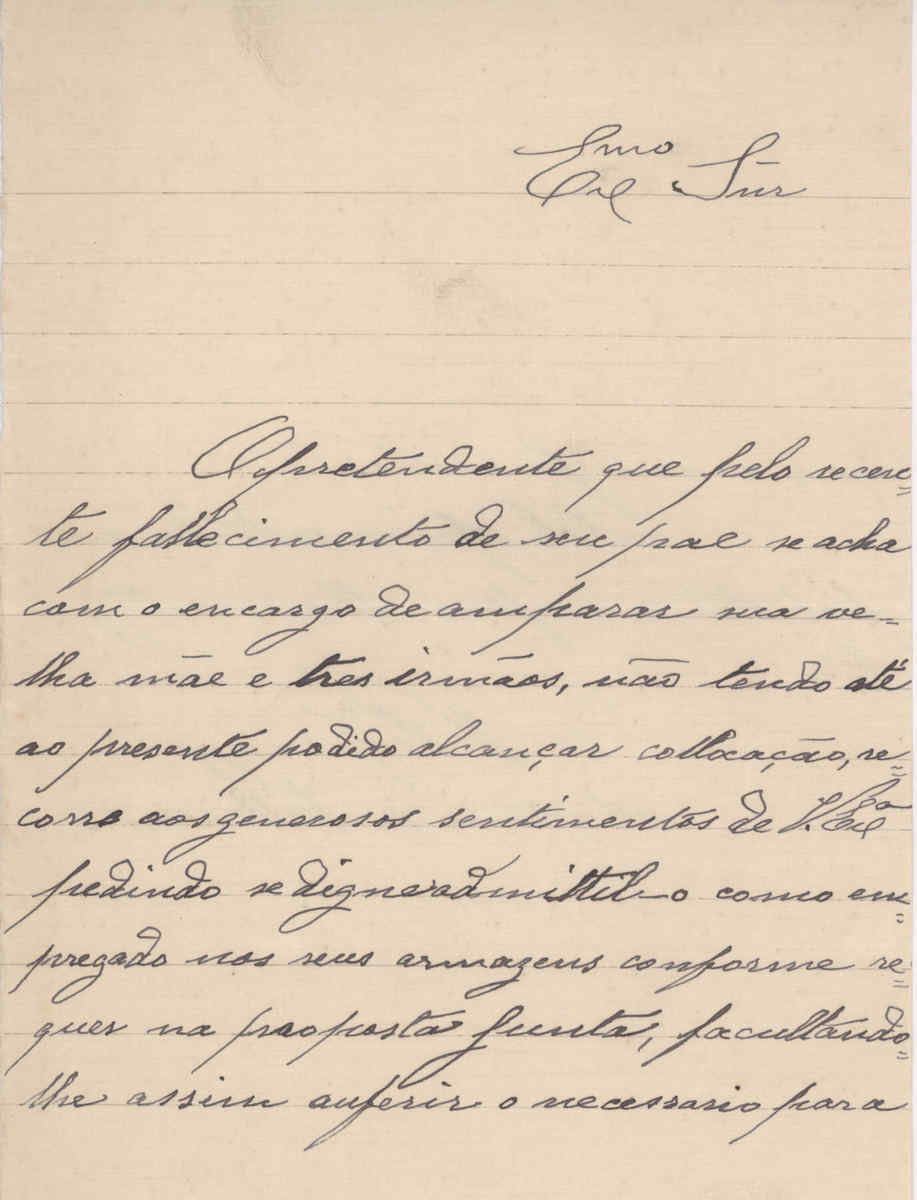 Exmo Snr
O pretendente que pelo recen=
te fallecimento de seu pae se acha
com o encargo de amparar sua ve=
lha mãe e tres irmãos, não tendo até
ao presente podido alcançar collocação, re=
corre aos generosos sentimentos de V. Exa
pedindo se digne admittil-o como em=
pregado nos seus armazens conforme re=
quer na proposta junta, facultando=
lhe assim auferir o necessario para